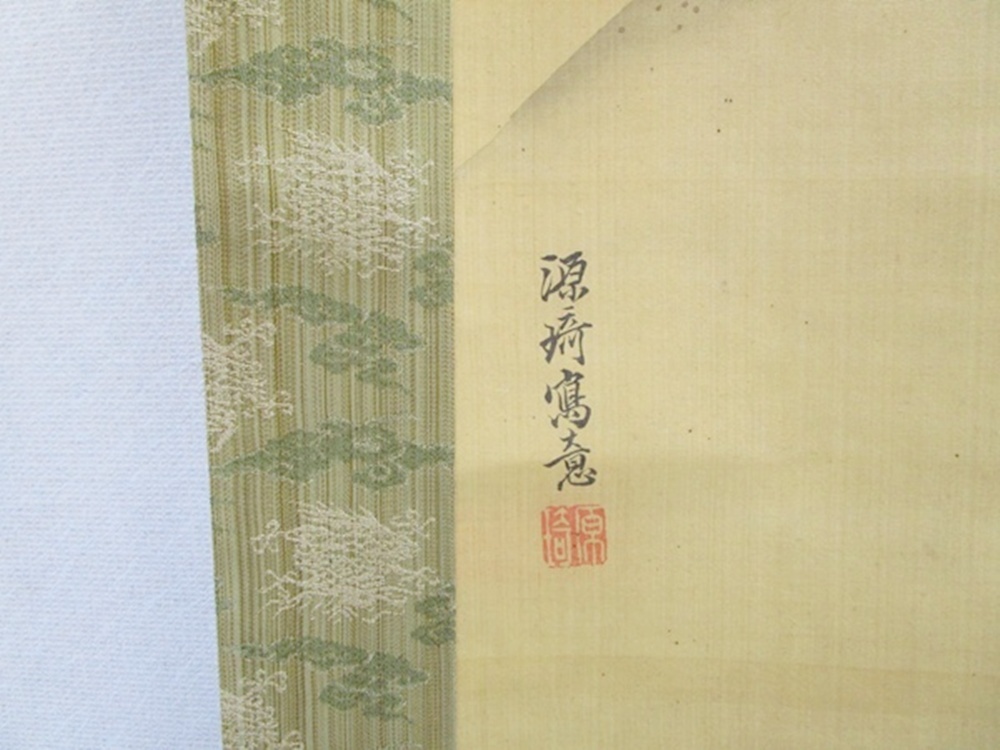 源琦寫意
源琦